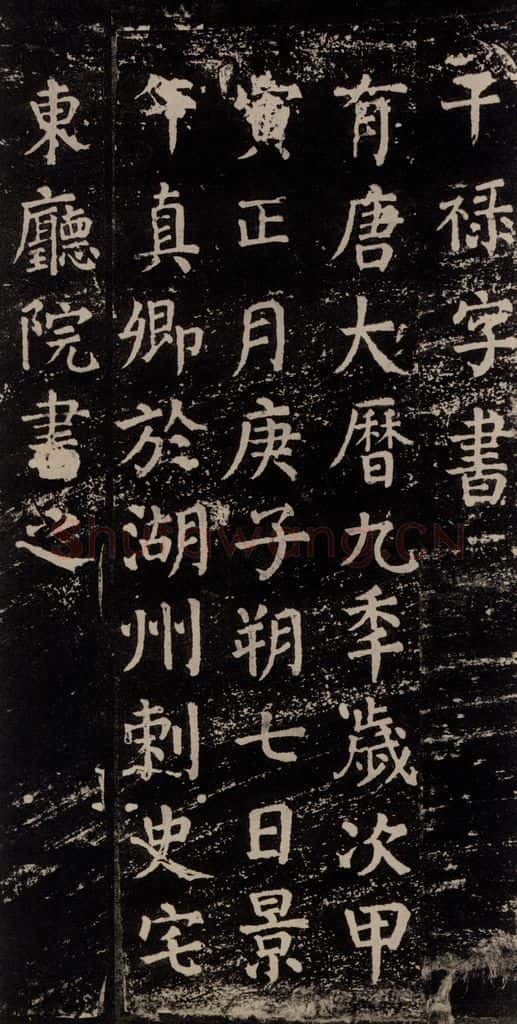 干禄字書
有唐大曆九秊歲次甲
寅正月庚子朔七日景
午真卿於湖州刺史宅
東廳院書之
Shufawang.CN